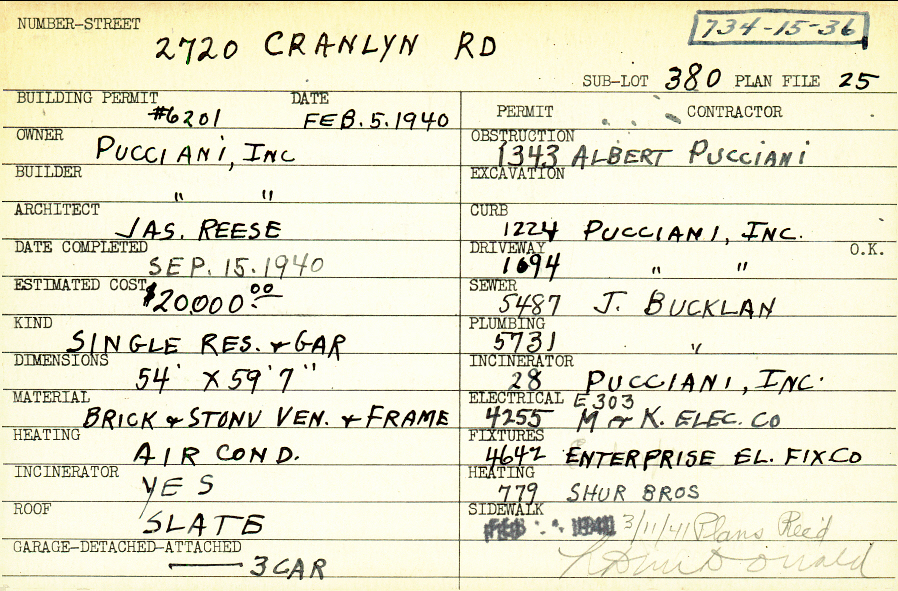 NUMBER-STREET
2720 CRANLYN RD
734-15-36
SUB-LOT 380 PLAN FILE 25
BUILDING PERMIT DATE
#6201 FEB.5.1940
OWNER
PUCCIANI, INC
BUILDER
" "
ARCHITECT
JAS. REESE
DATE COMPLETED
SEP. 15.1940
ESTIMATED COST
$20000.00
KIND
SINGLE RES. & GAR
DIMENSIONS
54' X 59'7"
MATERIAL
BRICK & STONV VEN. & FRAME
HEATING
AIR COND.
INCINERATOR
YES
ROOF
SLATE
GARAGE-DETACHED-ATTACHED
3 CAR
PERMIT CONTRACTOR
OBSTRUCTION
1343 ALBERT PUCCIANI
EXCAVATION
CURB
1224 PUCCIANI, INC.
DRIVEWAY O.K.
1694 " "
SEWER
5487 J. BUCKLAN
PLUMBING
5731 "
INCINERATOR
28 PUCCIANI, INC.
ELECTRICAL E303
4255 M & K. ELEC. CO
FIXTURES
4642 ENTERPRISE EL. FIX CO
HEATING
779 SHUR BROS
SIDEWALK
3/11/41 Plans Rec'd